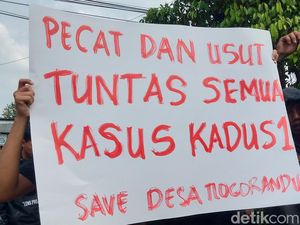 PECAT DAN USUT
TUNTAS SEMUA
KASUS KADUS 1
SAVE DESA TLOGORANDU
detikcom